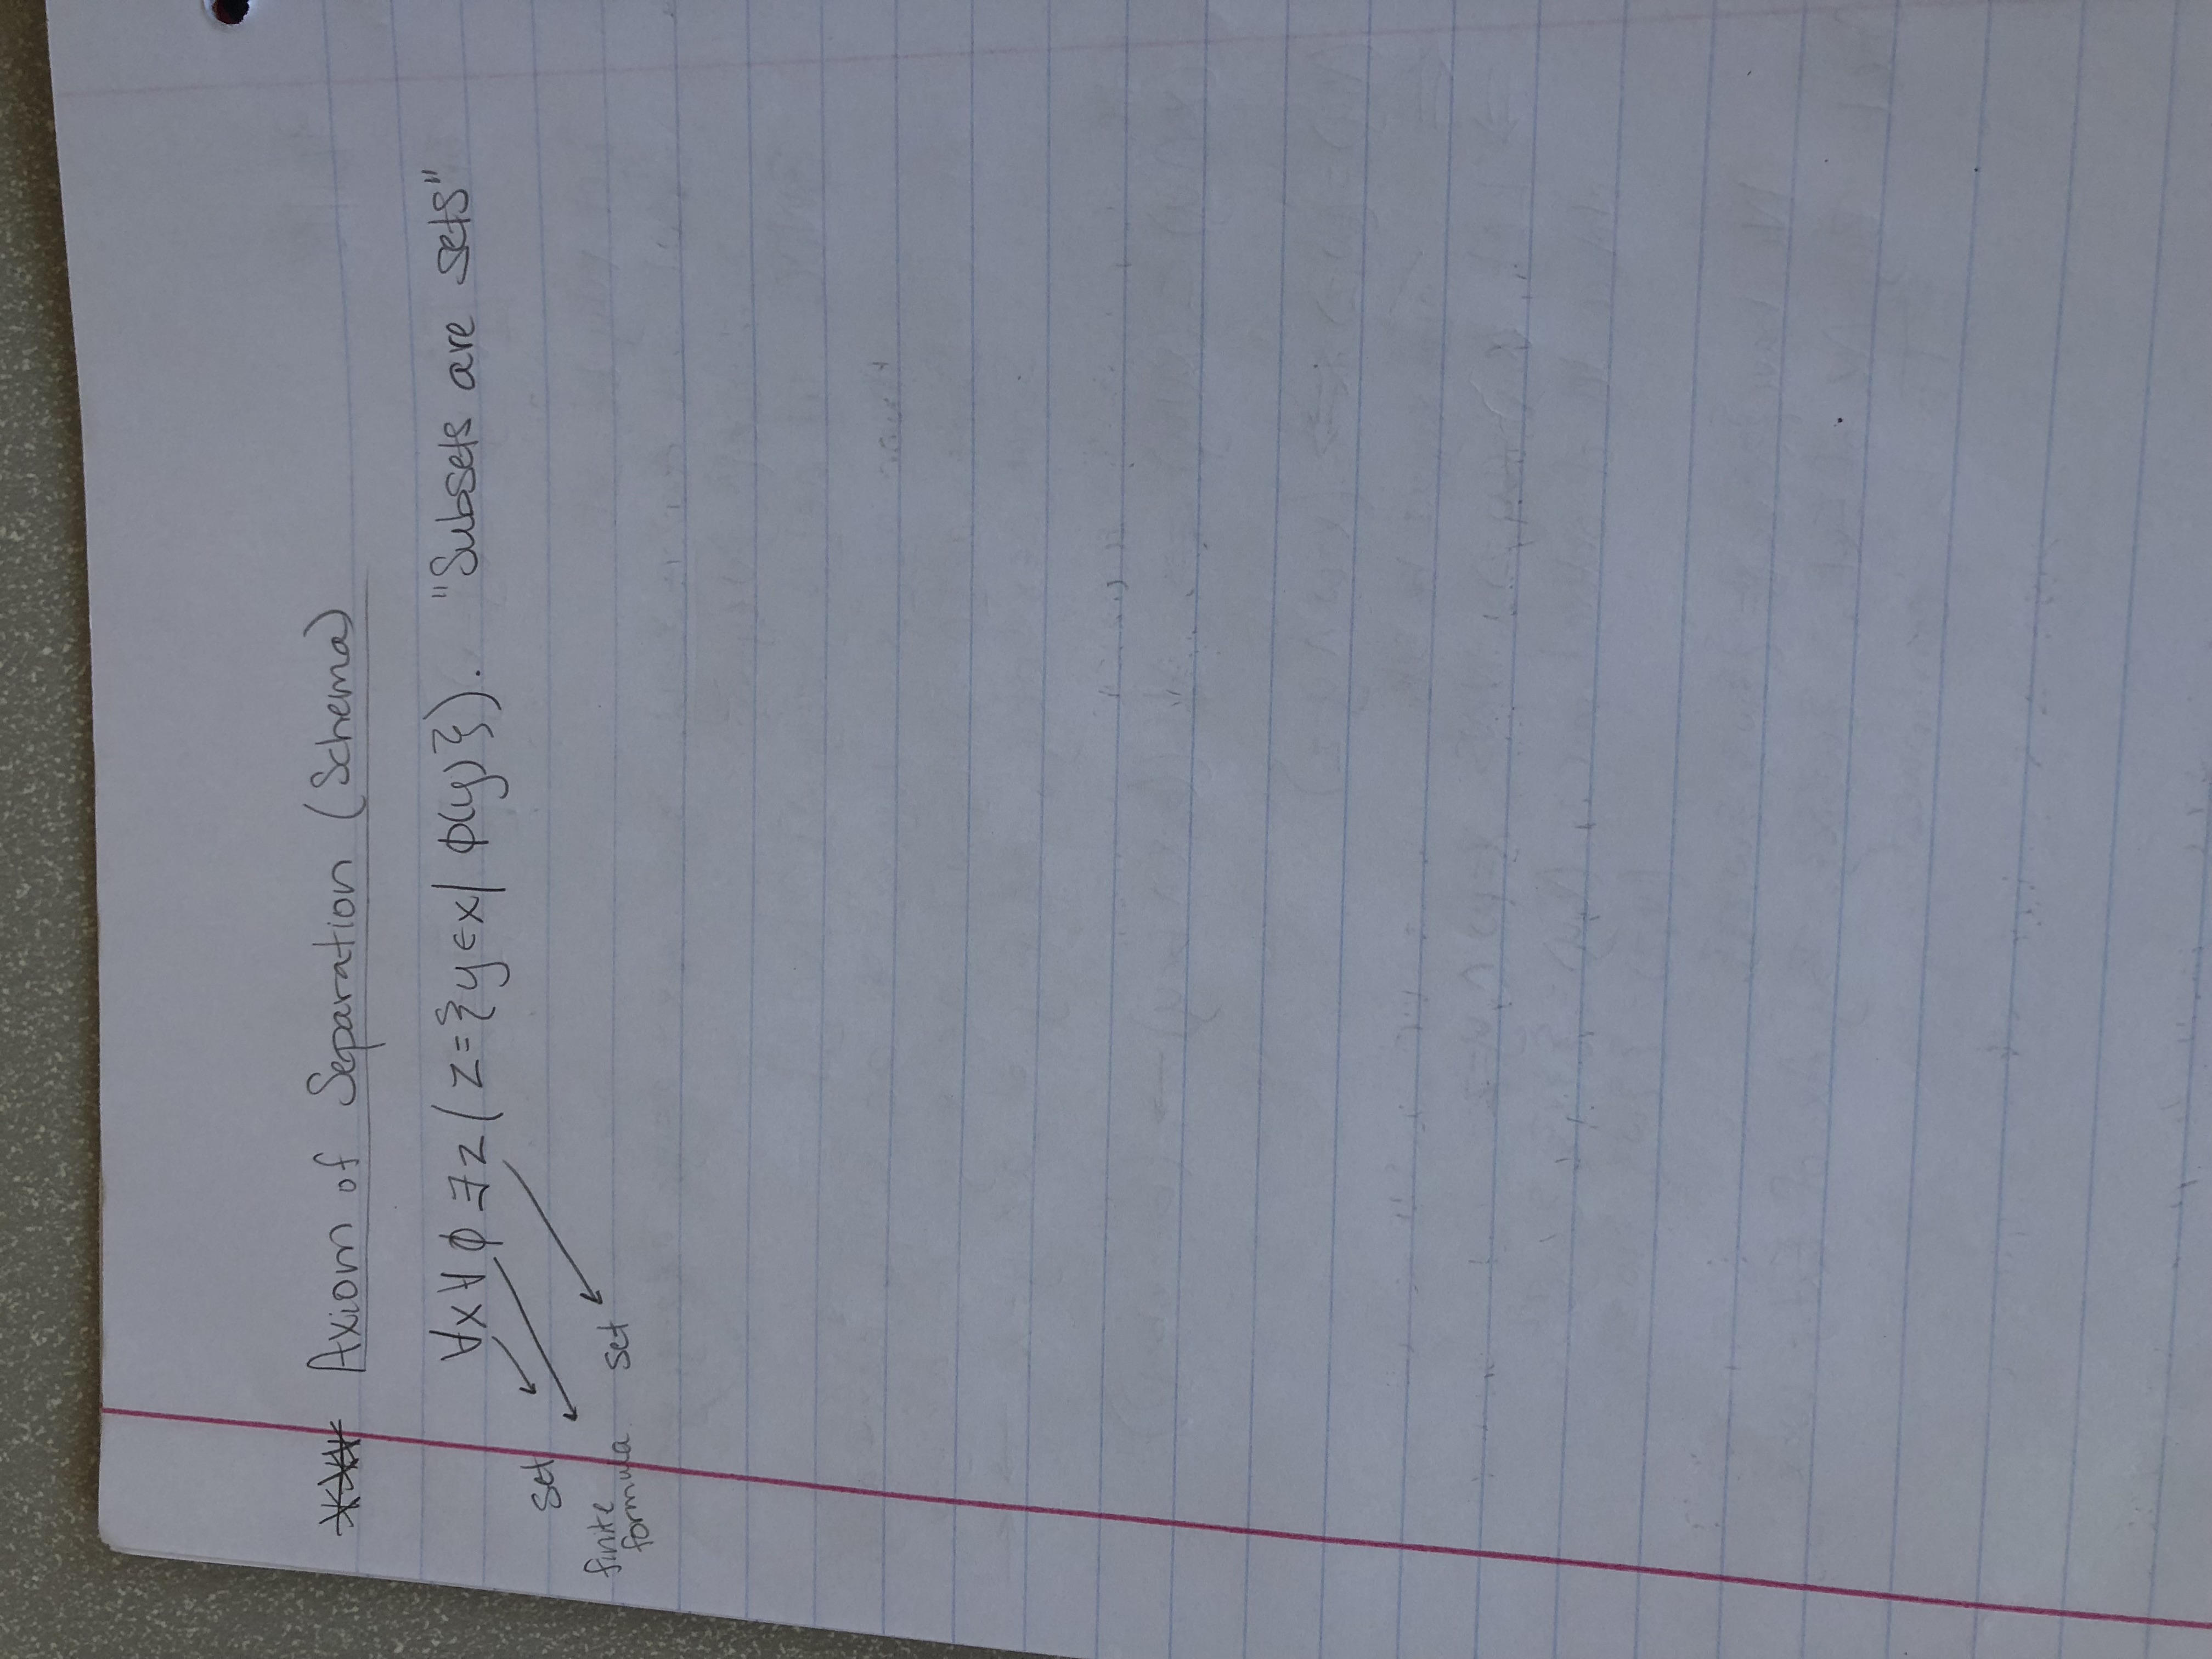 *** Axiom of Separation (Schema)
∀x∀ϕ∃z(z={y∈x| ϕ(y)}). "Subsets are sets"
set
finite
formula
set